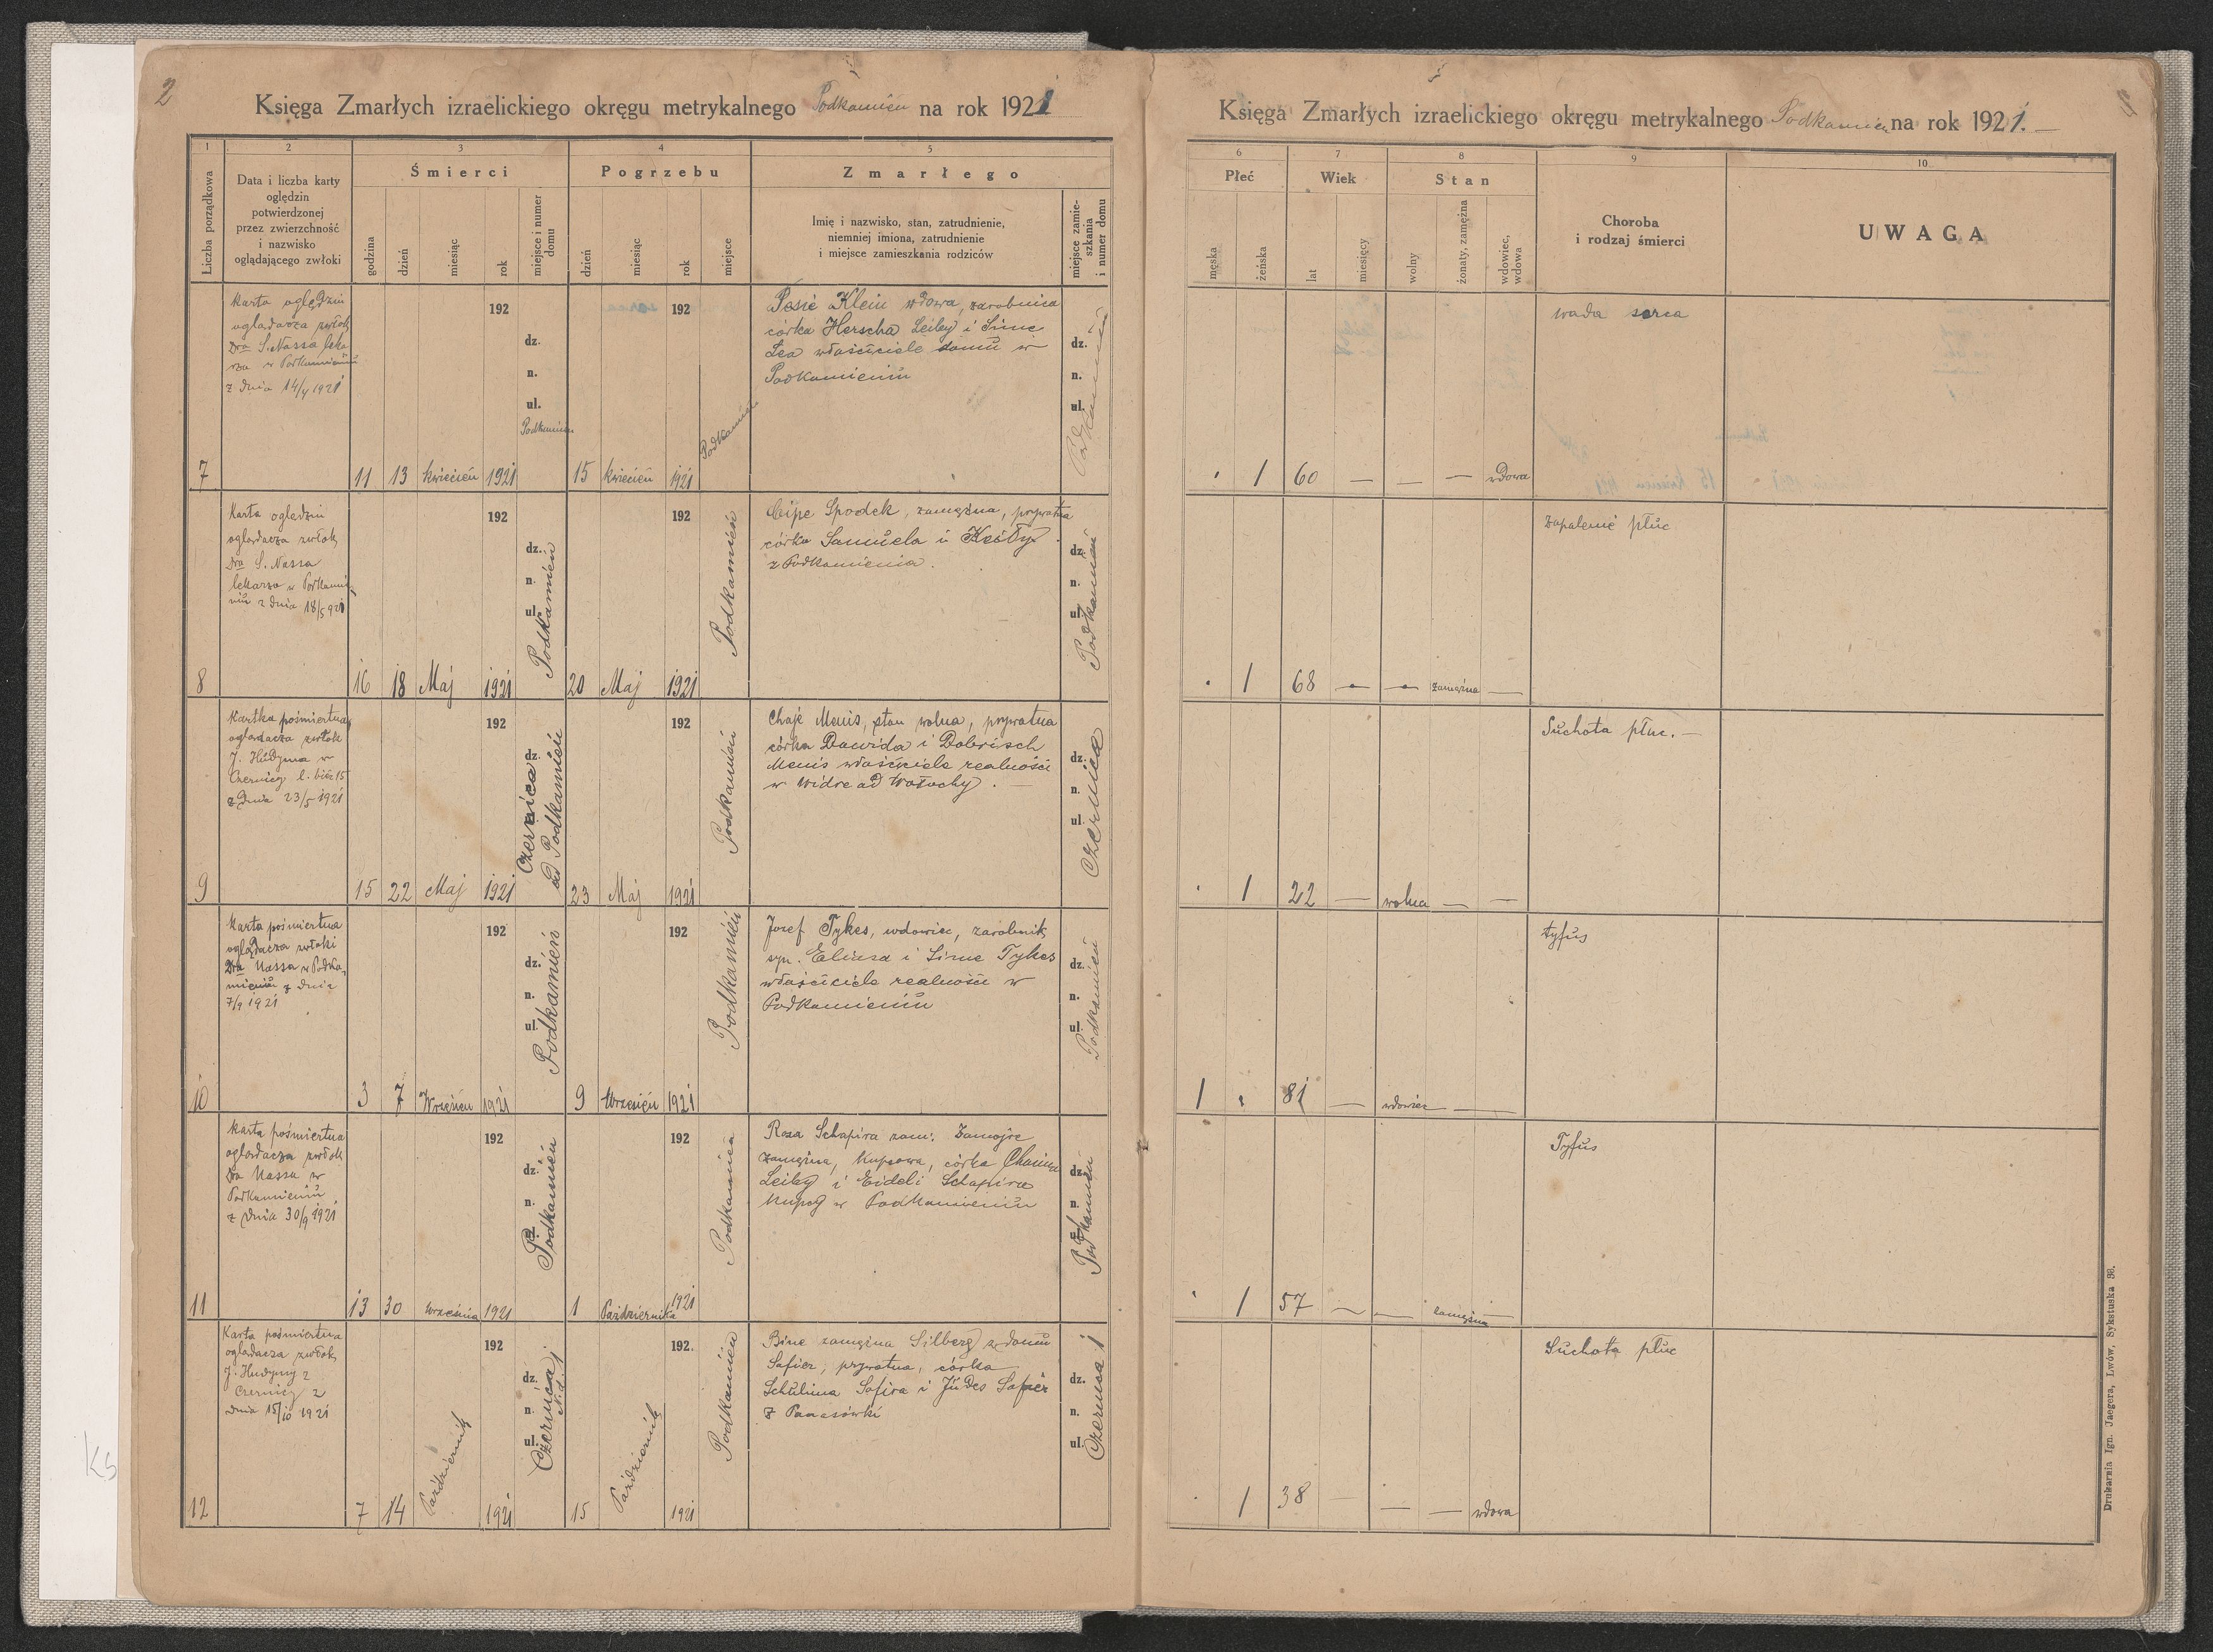 2
Księga Zmarłych izraelickiego okręgu metrykalnego Podkamień na rok 1921
1 2 3 4 5
Liczba porządkowa
Data i liczba karty
oględzin
potwierdzonej
przez zwierzchność
i nazwisko
oglądającego zwłoki
Śmierci
godzina dzień miesiąc rok miejsce i numer domu
Pogrzebu
dzień miesiąc rok miejsce
Zmarłego
Imię i nazwisko, stan, zatrudnienie,
niemniej imiona, zatrudnienie
i miejsce zamieszkania rodziców
miejsce zamie-
szkania
i numer domu
Karta oględzin
oglądacza zwłok
Dra S. Nassa leka
rza w Podkamieniu
z dnia 14/4 1921
192
dz.
n.
ul.
Podkamień
192
Podkamień
Pesie Klein wdowa, zarobnica
córka Herscha Leiby i Sime
Lea właściciele domu w
Podkamieniu
dz.
n.
ul.
Podkamień
7 11 13 kwiecień 1921 15 kwiecień 1921
Karta oględzin
oglądacza zwłok
Dra S. Nassa
lekarza w Podkamie
niu z dnia 18/5 921
192
dz.
n.
ul.
Podkamień
192
Podkamień
Cipe Spodek, zamężna, prywatna
córka Samuela i Keily
z Podkamienia.
dz.
n.
ul.
Podkamień
8 16 18 Maj 1921 20 Maj 1921
Kartka pośmiertna
oglądacza zwłok
J. Hudyma w
Czernicy l. bież 15
z dnia 23/5 1921
192
dz.
Czernica
ad Podkamień
192
Podkamień
Chaje Menis, stan wolna, prywatna
córka Dawida i Dobrisch
Menis właściciele realności
w Widre ad Wołochy.
dz.
n.
ul.
Czernica
9 15 22 Maj 1921 23 Maj 1921
Karta pośmiertna
oglądacza zwłoki
Dra Nassa w Podka
mieniu z dnia
7/9 1921
192
dz.
n.
ul.
Podkamień
192
Podkamień
Josef Tykes, wdowiec, zarobnik
syn Eliasa i Sime Tykes
właściciele realności w
Podkamieniu
dz.
n.
ul.
Podkamień
10 3 7 Wrzesień 1921 9 Wrzesień 1921
Karta pośmiertna
oglądacza zwłok
Dra Nassa w
Podkamieniu
z dnia 30/9 1921
192
dz.
n.
ul.
Podkamień
192
Podkamień
Rosa Schapira zam: Zamojre
zamężna, kupcowa, córka Chaima
Leiby i Eideli Schapira
kupcy w Podkamieniu
dz.
n.
ul.
Podkamień
11 13 30 Września 1921 1 Października 1921
Karta pośmiertna
oglądacza zwłok
J. Hudymy z
Czernicy z
dnia 15/10 1921
192
dz.
n.
ul.
Czernica
192.
Podkamień
Bine zamężna Silberg z domu
Safier, prywatna, córka
Schulima Safira i Judes Safier
z Panasówki
dz.
n.
ul.
Czernica
12 7 14 Październik 1921 15 Październik 1921
Księga Zmarłych izraelickiego okręgu metrykalnego Podkamień na rok 1921.
6 7 8 9 10.
Płeć
męska żeńska
Wiek
lat miesięcy
Stan
wolny żonaty, zamężna wdowiec, wdowa
Choroba
i rodzaj śmierci
UWAGA
wada serca
1 60 — — — wdowa
zapalenie płuc
1 68 — — zamężna —
Suchota płuc. —
1 22 — wolna — —
tyfus
1 81 — wdowiec —
Tyfus
1 57 — — zamężna
Suchota płuc
1 38 — — — wdowa
Drukarnia Ign. Jaegera, Lwów, Sykstuska 36.